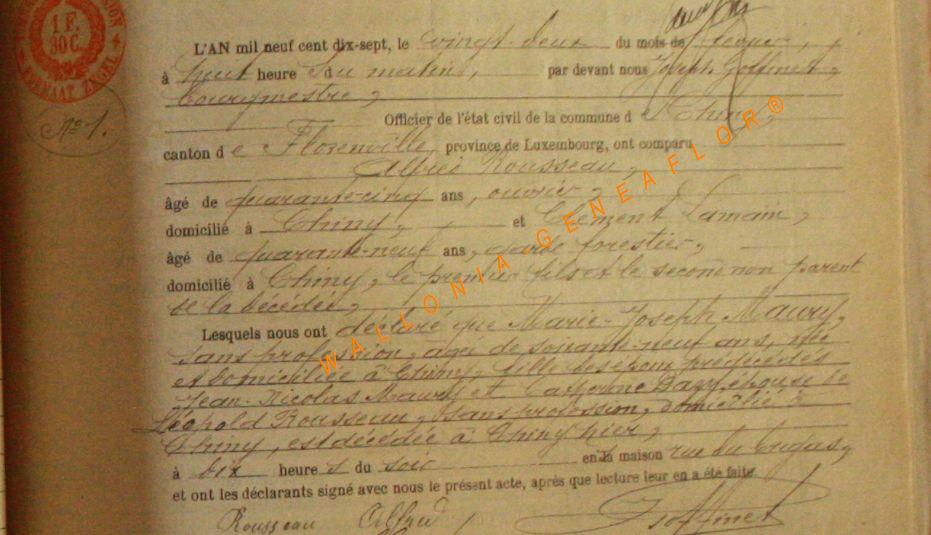 1 F. 30 C.
FORMAAT ZEGEL
N° 1.
L'AN mil neuf cent dix-sept, le vingt deux du mois de
à huit heure s du matin, par devant nous Joseph Goffinet,
bourgmestre,
Officier de l'état civil de la commune d e Chiny,
canton d e Florenville, province de Luxembourg, ont comparu
Alfred Rousseau,
âgé de quarante-cinq ans, ouvrier,
domicilié à Chiny, et Clément Lamain,
âgé de quarante-neuf ans, garde forestier,
domicilié à Chiny, le premier fils et le second non parent
de la décédée,
Lesquels nous ont déclaré que Marie-Joseph Maury,
sans profession, agée de soixante-neuf ans, née
et domiciliée à Chiny, fille des époux prédécédés
Jean-Nicolas Maury et Catherine epouse de
Léopold Rousseau, sans profession, domicilié à
Chiny, est décédée à Chiny hier,
à dix heure s du soir en la maison rue du
et ont les déclarants signé avec nous le présent acte, après que lecture leur en a été faite
Rousseau Alfred JGoffinet
WALLONIA GENEAFLOR®